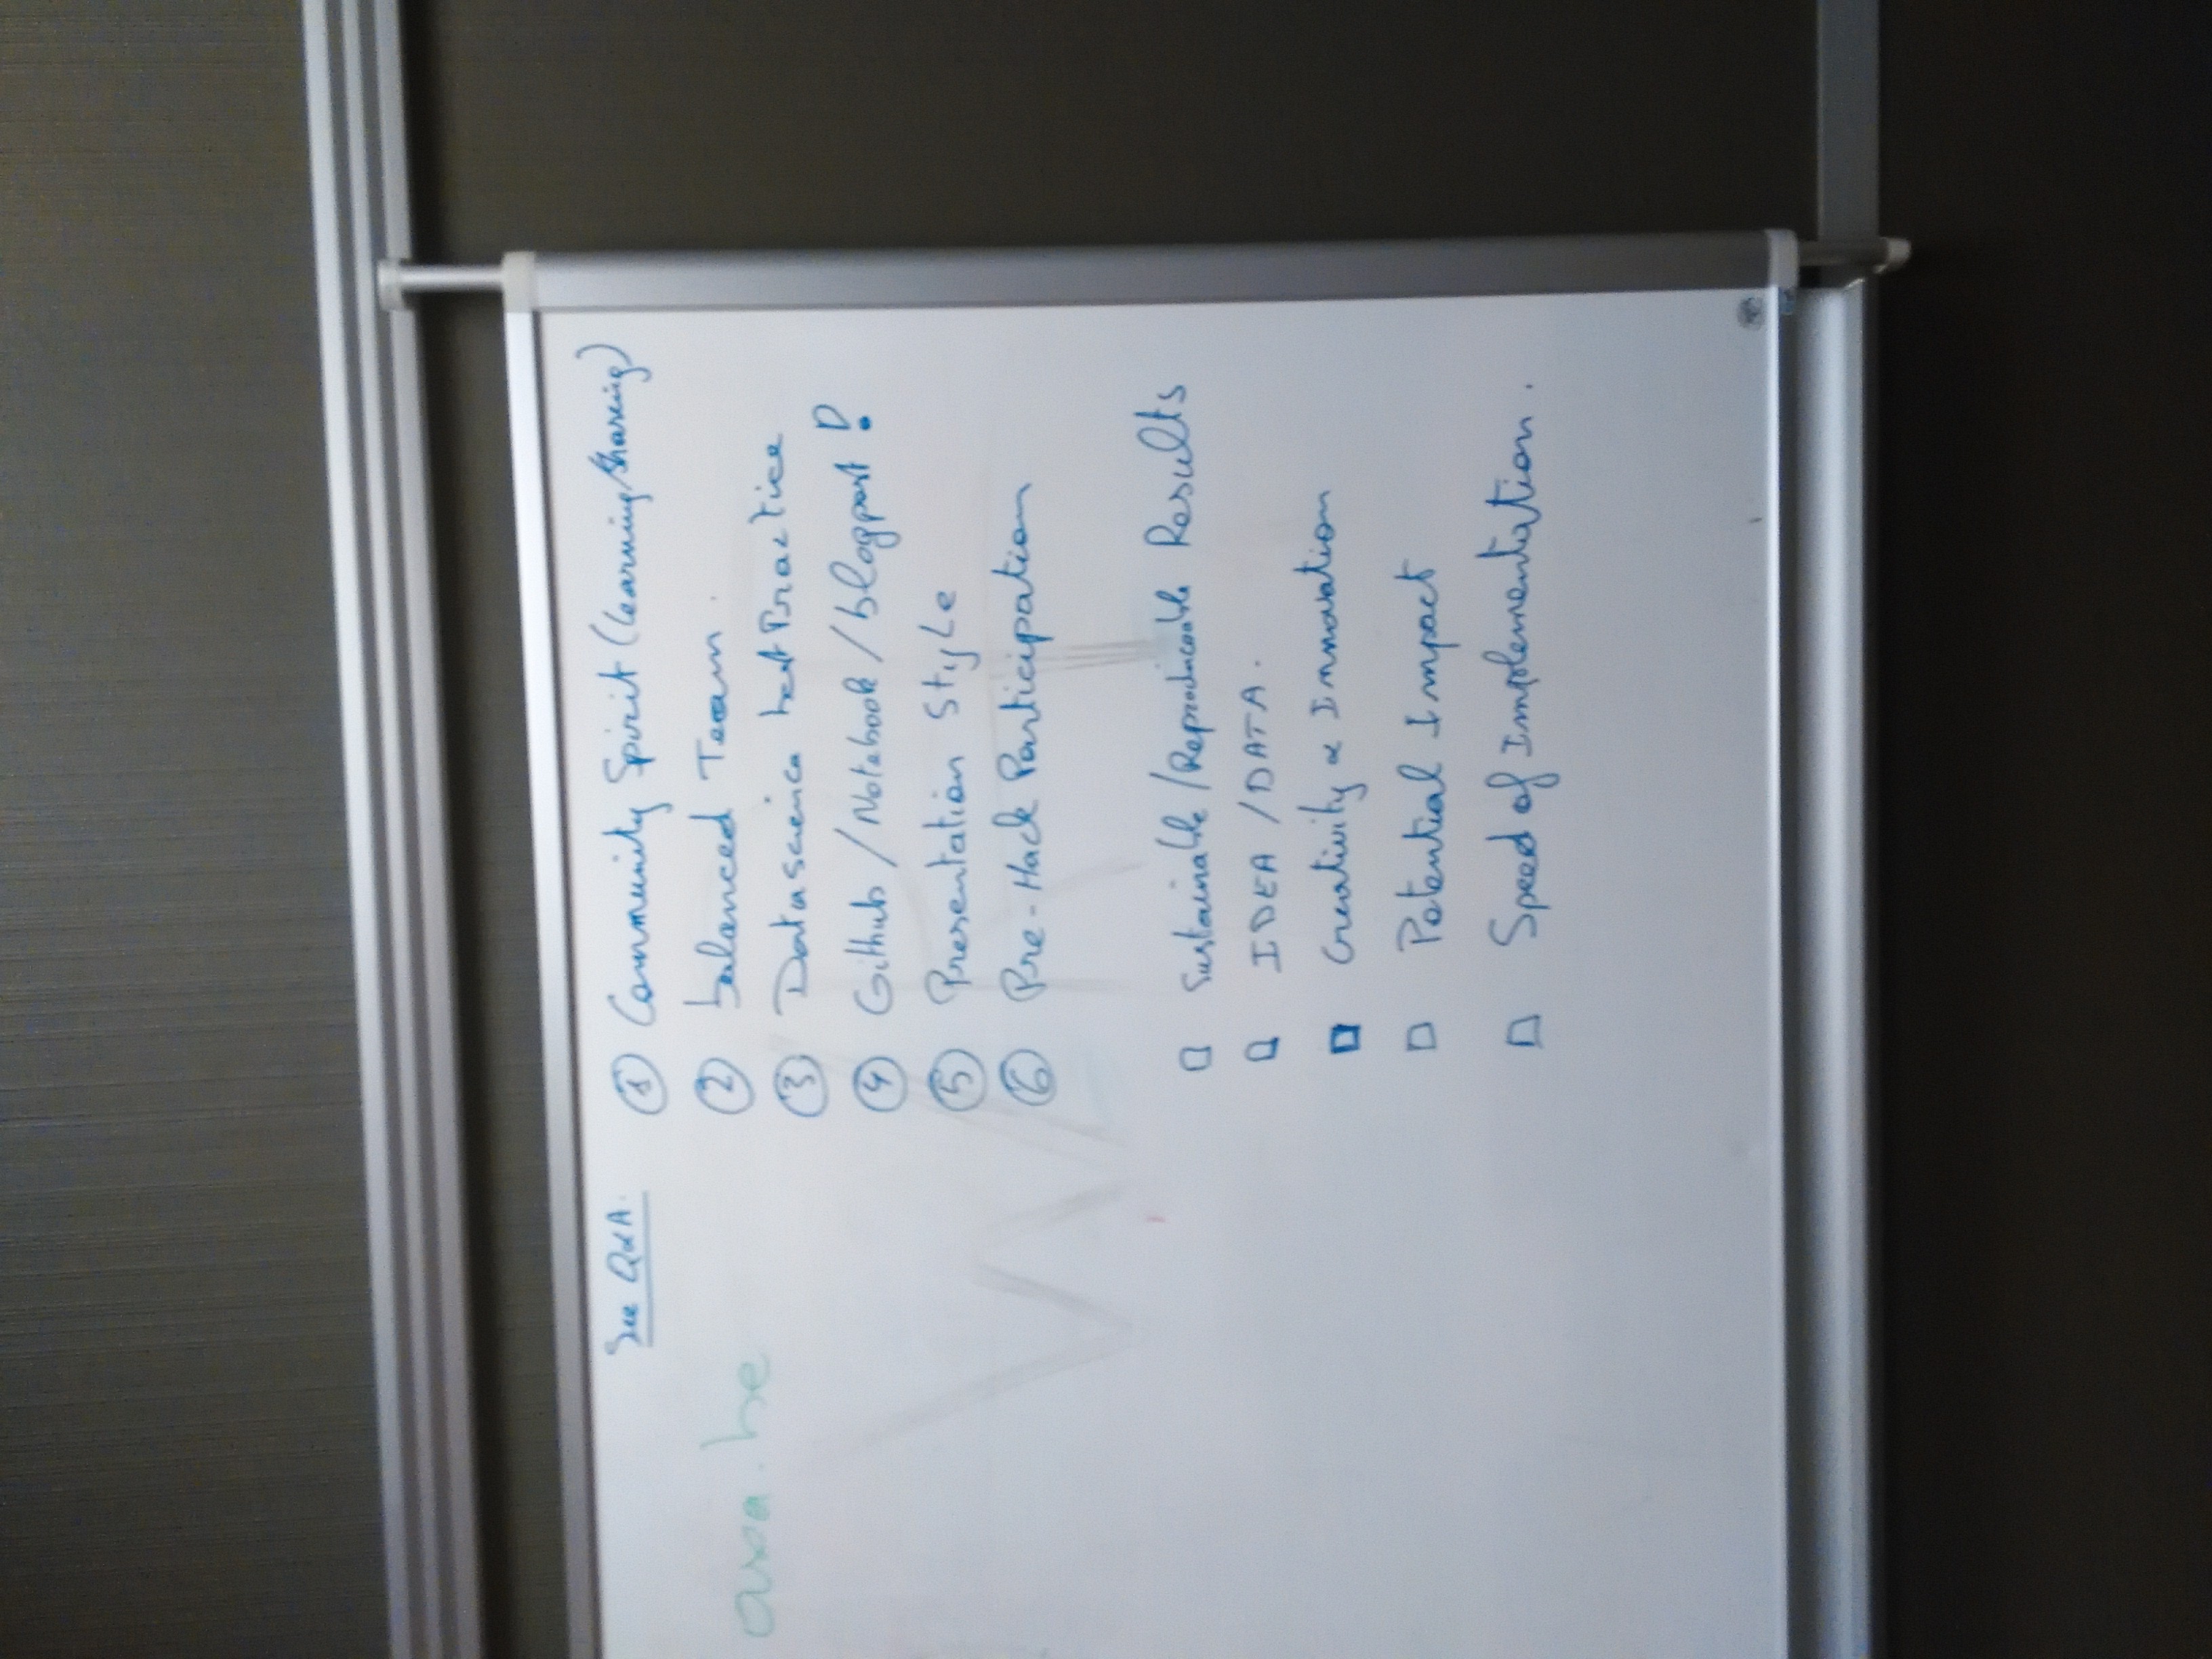 See Q&A.
① Community Spirit (learning/sharing)
② balanced Team.
axa.be
③ Datascience best Practice
④ Github / Notebook / blogpost !
⑤ Presentation Style
⑥ Pre-Hack Participation
□ Sustainable/Reproduceable Results
□ IDEA / DATA.
□ Creativity & Innovation
□ Potential Impact
□ Speed of Implementation.